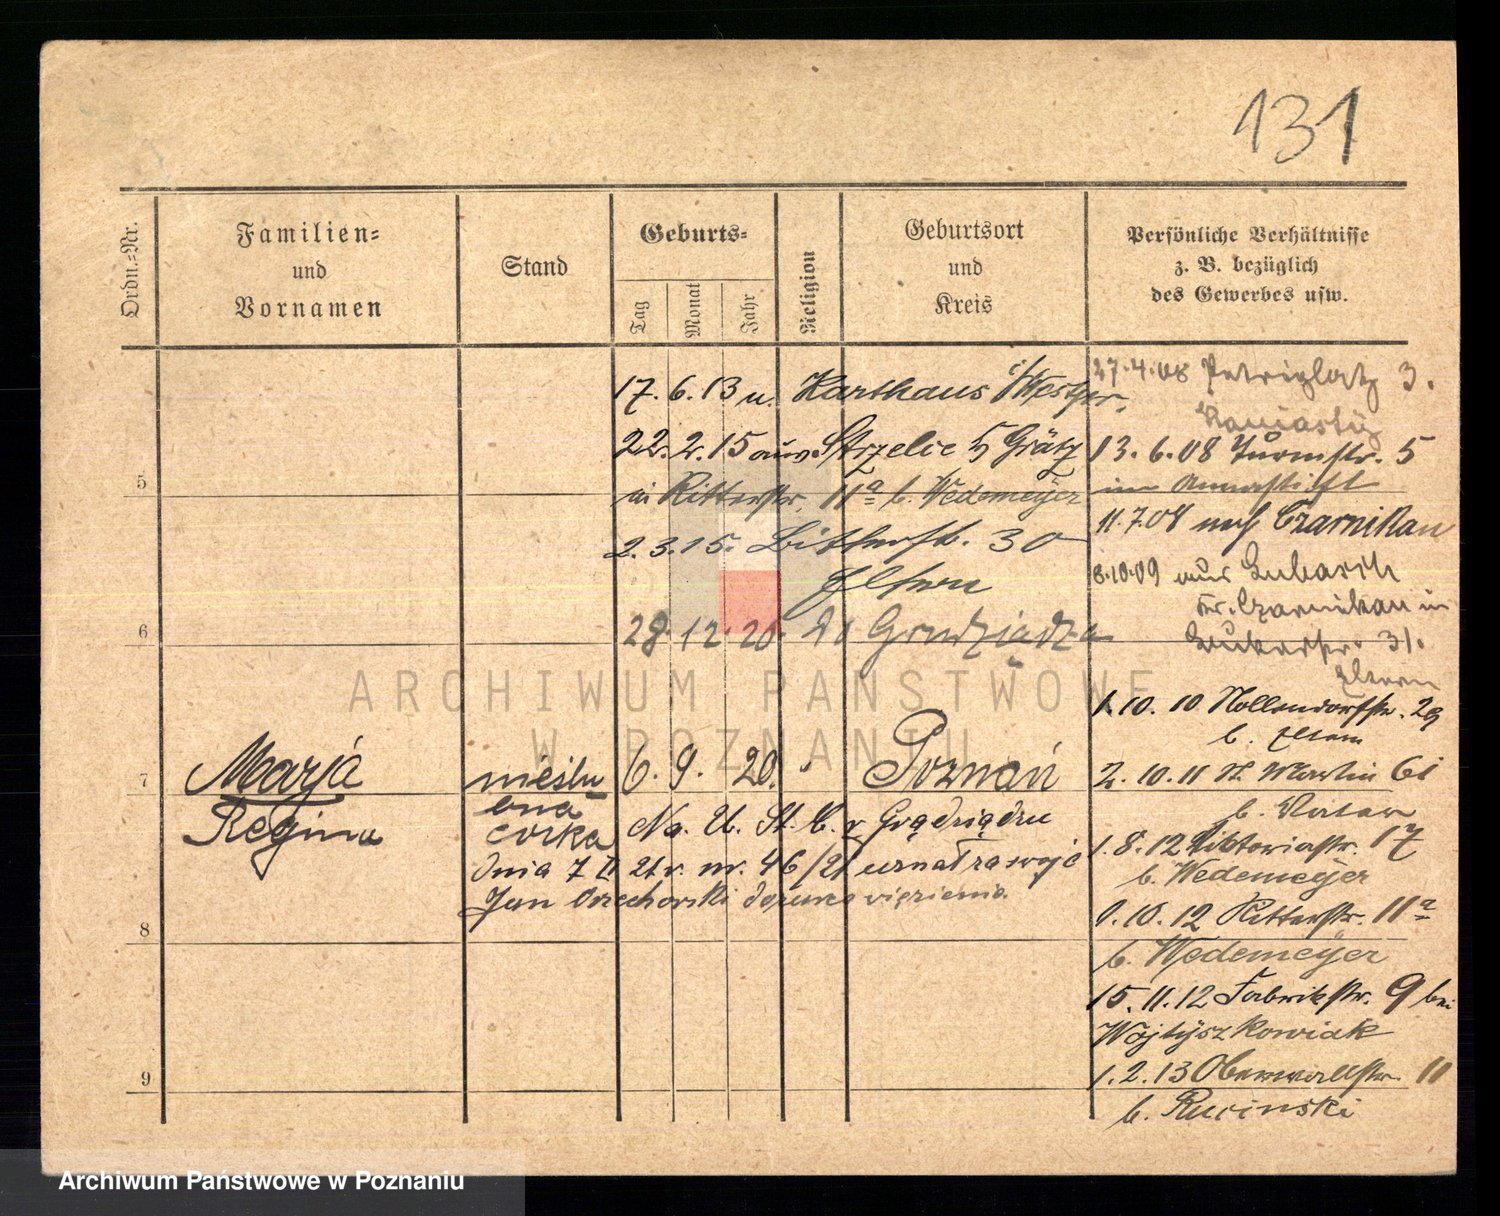 131
Ordn.-Nr.
Familien-
und
Vornamen
Stand
Geburts-
Tag
Monat
Jahr
Religion
Geburtsort
und
Kreis
Persönliche Verhältnisse
z. B. bezüglich
des Gewerbes usw.
17. 6. 13 u. Karthaus i/Westpr.
22. 2. 15 aus Strzelce b/ Grätz
in Ritterstr. 11a b. Wedemeyer
2. 3. 15. Bitterstr. 30
Eltern
28. 12. 20. do Grudziądza
5
6
7 Marja
Regina
nieślu
bna
córka
6. 9. 20. Poznań
Na U. St. C. w Grądziądzu
dnia 7 II 21 r. nr. 46/21 uznał za swoje
Jan Orzechowski
8
9
27. 4. 08 Petriplatz 3.
13. 6. 08 Turmstr. 5
im Annastift
11. 7. 08 nach Czarnikau
8. 10. 09 aus Lubasch
Kr. Czarnikau in
31.
Eltern
1. 10. 10 Nollendorfstr. 29
b. Eltern
2. 10. 11 St. Martin 61
b. Vater
1. 8. 12 Viktoriastr. 17
b. Wedemeyer
1. 10. 12 Ritterstr. 11a
b. Wedemeyer
15. 11. 12 Fabrikstr. 9 bei
Wojtyszkowiak
1. 2. 13 Oberwallstr. 11
b. Rucinski
ARCHIWUM PAŃSTWOWE
W POZNANIU
Archiwum Państwowe w Poznaniu